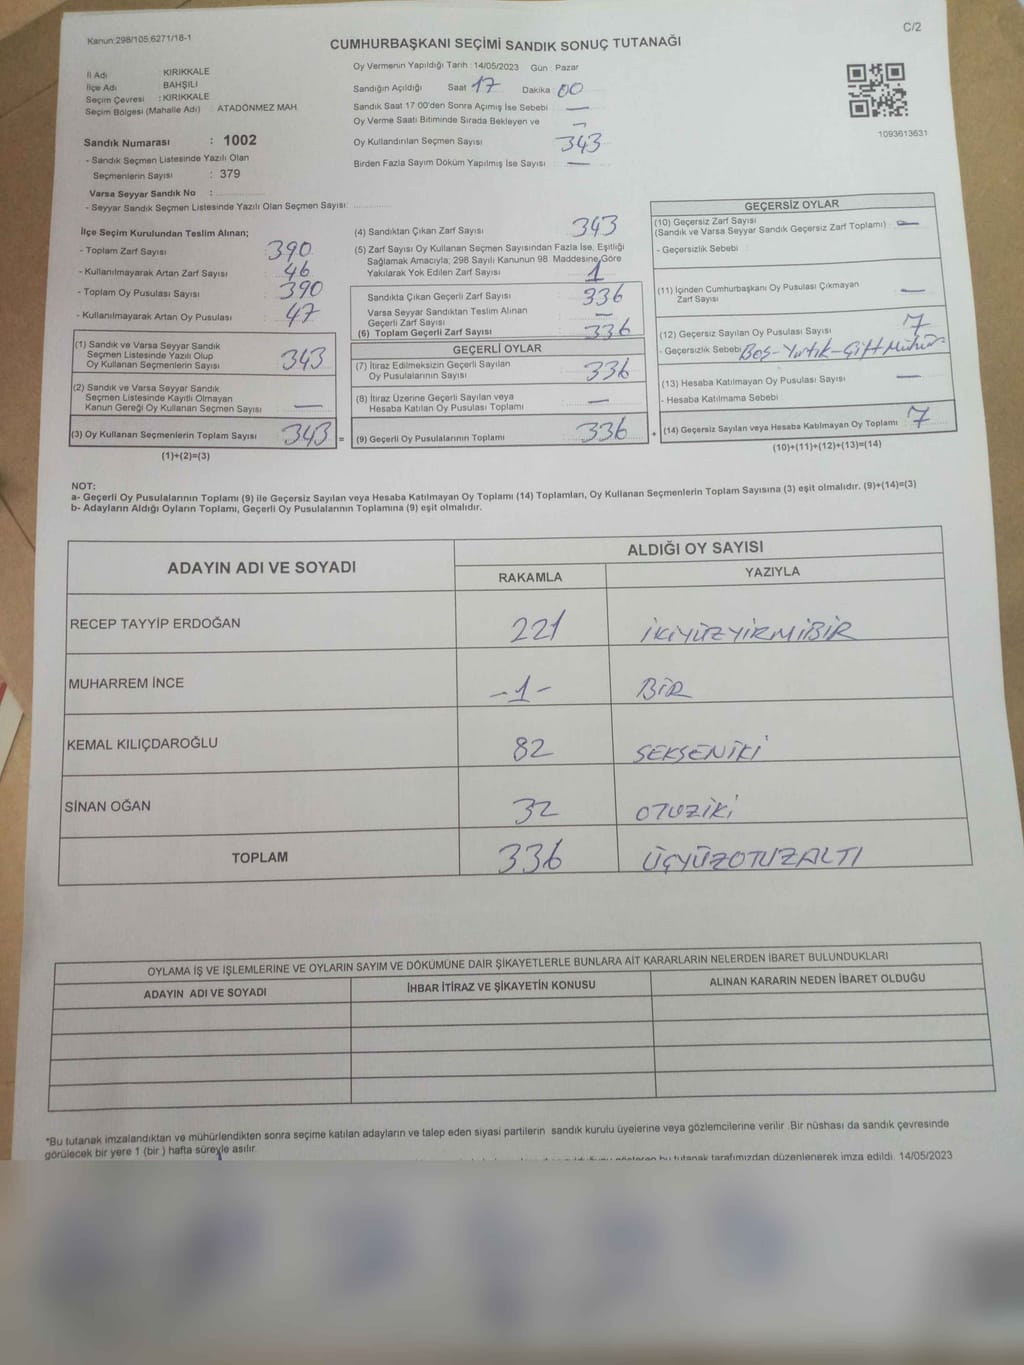 Kanun:298/105,6271/18-1
C/2
CUMHURBAŞKANI SEÇİMİ SANDIK SONUÇ TUTANAĞI
İl Adı KIRIKKALE
İlçe Adı BAHŞILI
Seçim Çevresi : KIRIKKALE
Seçim Bölgesi (Mahalle Adı) : ATADÖNMEZ MAH
Sandık Numarası : 1002
- Sandık Seçmen Listesinde Yazılı Olan
Seçmenlerin Sayısı : 379
Varsa Seyyar Sandık No :
- Seyyar Sandık Seçmen Listesinde Yazılı Olan Seçmen Sayısı:
Oy Vermenin Yapıldığı Tarih : 14/05/2023 Gün : Pazar
Sandığın Açıldığı Saat 17 Dakika 00
Sandık Saat 17:00'den Sonra Açımış İse Sebebi —
Oy Verme Saati Bitiminde Sırada Bekleyen ve
Oy Kullandırılan Seçmen Sayısı 343
Birden Fazla Sayım Döküm Yapılmış İse Sayısı —
1093613631
İlçe Seçim Kurulundan Teslim Alınan;
- Toplam Zarf Sayısı 390
- Kullanılmayarak Artan Zarf Sayısı 46
- Toplam Oy Pusulası Sayısı 390
- Kullanılmayarak Artan Oy Pusulası 47
(1) Sandık ve Varsa Seyyar Sandık
Seçmen Listesinde Yazılı Olup
Oy Kullanan Seçmenlerin Sayısı 343
(2) Sandık ve Varsa Seyyar Sandık
Seçmen Listesinde Kayıtlı Olmayan
Kanun Gereği Oy Kullanan Seçmen Sayısı —
(3) Oy Kullanan Seçmenlerin Toplam Sayısı 343 =
(1)+(2)=(3)
(4) Sandıktan Çıkan Zarf Sayısı 343
(5) Zarf Sayısı Oy Kullanan Seçmen Sayısından Fazla İse, Eşitliği
Sağlamak Amacıyla; 298 Sayılı Kanunun 98 Maddesine Göre
Yakılarak Yok Edilen Zarf Sayısı 1
Sandıkta Çıkan Geçerli Zarf Sayısı 336
Varsa Seyyar Sandıktan Teslim Alınan
Geçerli Zarf Sayısı —
(6) Toplam Geçerli Zarf Sayısı 336
GEÇERLİ OYLAR
(7) İtiraz Edilmeksizin Geçerli Sayılan
Oy Pusulalarının Sayısı 336
(8) İtiraz Üzerine Geçerli Sayılan veya
Hesaba Katılan Oy Pusulası Toplamı —
(9) Geçerli Oy Pusulalarının Toplamı 336 +
GEÇERSİZ OYLAR
(10) Geçersiz Zarf Sayısı
(Sandık ve Varsa Seyyar Sandık Geçersiz Zarf Toplamı) —
- Geçersizlik Sebebi
(11) İçinden Cumhurbaşkanı Oy Pusulası Çıkmayan
Zarf Sayısı —
(12) Geçersiz Sayılan Oy Pusulası Sayısı 7
- Geçersizlik Sebebi Boş-Yırtık-Çift Mühür
(13) Hesaba Katılmayan Oy Pusulası Sayısı —
- Hesaba Katılmama Sebebi
(14) Geçersiz Sayılan veya Hesaba Katılmayan Oy Toplamı 7
(10)+(11)+(12)+(13)=(14)
NOT:
a- Geçerli Oy Pusulalarının Toplamı (9) ile Geçersiz Sayılan veya Hesaba Katılmayan Oy Toplamı (14) Toplamları, Oy Kullanan Seçmenlerin Toplam Sayısına (3) eşit olmalıdır. (9)+(14)=(3)
b- Adayların Aldığı Oyların Toplamı, Geçerli Oy Pusulalarının Toplamına (9) eşit olmalıdır.
ADAYIN ADI VE SOYADI
ALDIĞI OY SAYISI
RAKAMLA YAZIYLA
RECEP TAYYİP ERDOĞAN 221 İKİYÜZYİRMİBİR
MUHARREM İNCE -1- BİR
KEMAL KILIÇDAROĞLU 82 SEKSENİKİ
SİNAN OĞAN 32 OTUZİKİ
TOPLAM 336 ÜÇYÜZOTUZALTI
OYLAMA İŞ VE İŞLEMLERİNE VE OYLARIN SAYIM VE DÖKÜMÜNE DAİR ŞİKAYETLERLE BUNLARA AİT KARARLARIN NELERDEN İBARET BULUNDUKLARI
ADAYIN ADI VE SOYADI İHBAR İTİRAZ VE ŞİKAYETİN KONUSU ALINAN KARARIN NEDEN İBARET OLDUĞU
*Bu tutanak imzalandıktan ve mühürlendikten sonra seçime katılan adayların ve talep eden siyasi partilerin sandık kurulu üyelerine veya gözlemcilerine verilir .Bir nüshası da sandık çevresinde
görülecek bir yere 1 (bir ) hafta süreyle asılır.
bu tutanak tarafımızdan düzenlenerek imza edildi. 14/05/2023